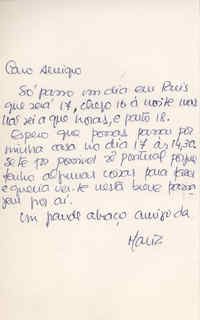 Caro Amigo
Só passo um dia em Paris
que será 17, chego 16 à noite mas
não sei a que horas, e parto 18.
Espero que possas passar por
minha casa no dia 17 às 14,30
se te for possível sê pontual porque
tenho algumas coisas para fazer
e queria ver-te nesta breve passa
gem por aí.
Um grande abraço amigo da
Mariz